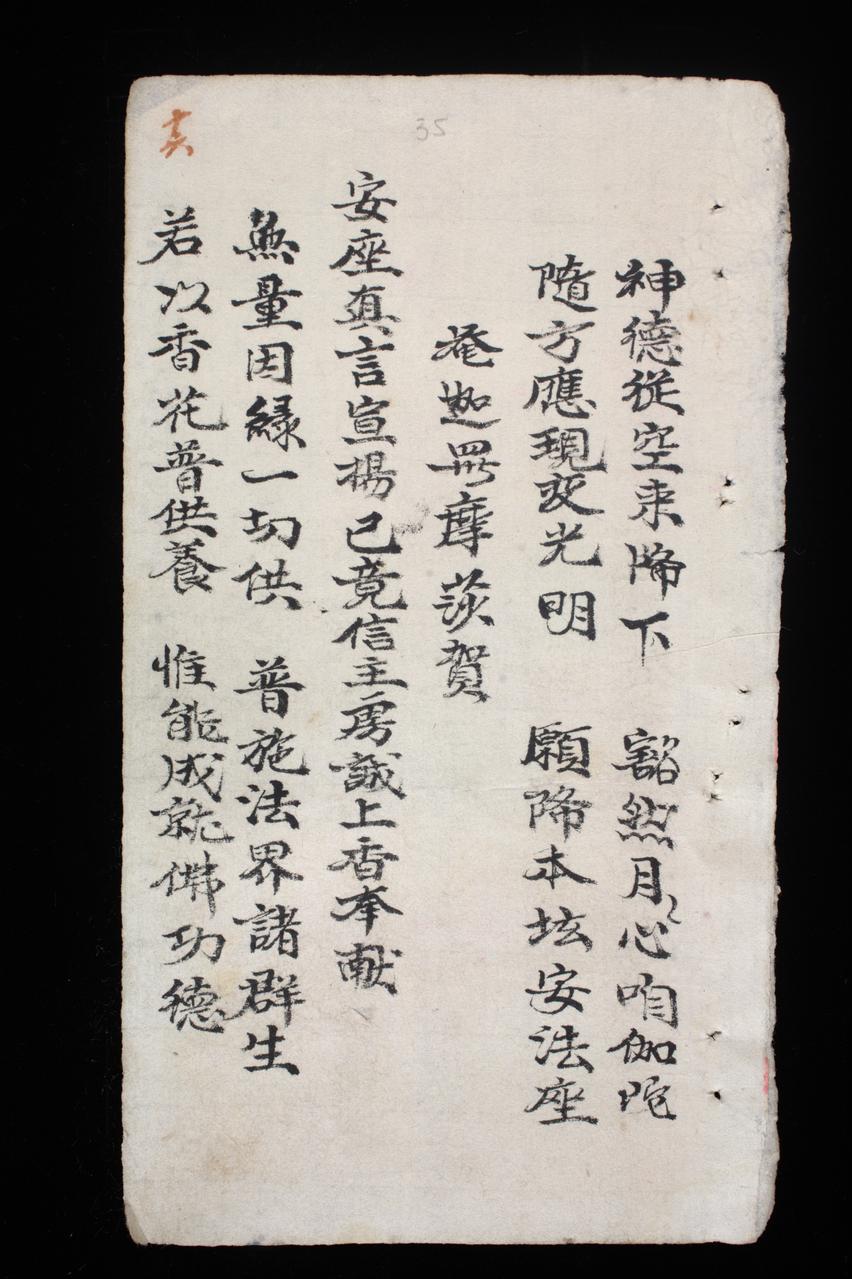 35
神德從空来降下　豁然月心咱伽陀
隨方應現光明　願降本坛安法座
唵迦摩莎賀
安座真言宣揚已竟信主虔誠上香奉献
無量因緣一切供　普施法界諸群生
若以香花普供養　惟能成就佛功德